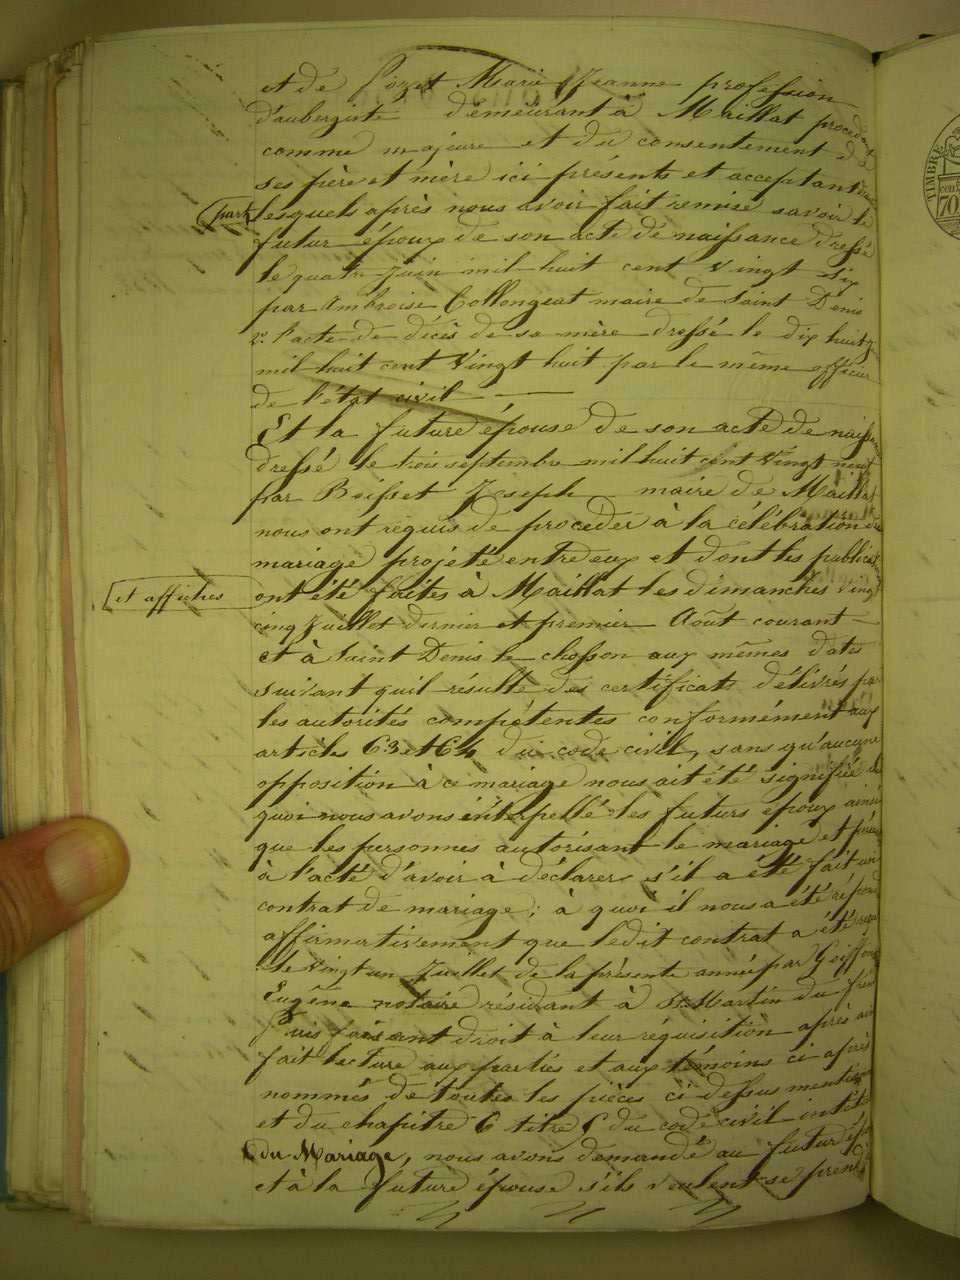 et de Pozet Marie Jeanne profession
d'aubergiste demeurant à Maillat procédant
comme majeure et du consentement de
ses père et mère ici présents et acceptant
part
lesquels après nous avoir fait remise savoir le
futur époux de son acte de naissance dressé
le quatre juin mil huit cent vingt six
par Ambroise Collongeat maire de Saint Denis
2° l'acte de décès de sa mère dressé le dix huit
mil huit cent vingt huit par le même officier
de l'état civil
Et la future épouse de son acte de naiss
dressé le trois septembre mil huit cent vingt neuf
par Boisset Joseph maire de Maillat
nous ont requis de procéder à la célébration du
mariage projeté entre eux et dont les public
et affiches
ont été faites à Maillat les dimanches vingt
cinq Juillet dernier et premier Août courant
et à Saint Denis le chosson aux mêmes dates
suivant qu'il résulte des certificats délivrés par
les autorités compétentes conformément aux
articles 63 et 64 du code civil, sans qu'aucune
opposition à ce mariage nous ait été signifiée de
quoi nous avons interpellé les futurs époux ainsi
que les personnes autorisant le mariage et
à l'acte d'avoir à déclarer s'il a été fait un
contrat de mariage; à quoi il nous a été répond
affirmativement que ledit contrat a été reçu
le vingt un Juillet de la présente année par Goiffon
Eugène notaire résidant à St Martin du frêne
Puis faisant droit à leur réquisition après avoir
fait lecture aux parties et aux témoins ci après
nommés de toutes les pièces ci dessus mention
et du chapitre 6 titre 5 du code civil intitulé
du Mariage, nous avons demandé au futur époux
et à la future épouse s'ils veulent se prendre
TIMBRE
70